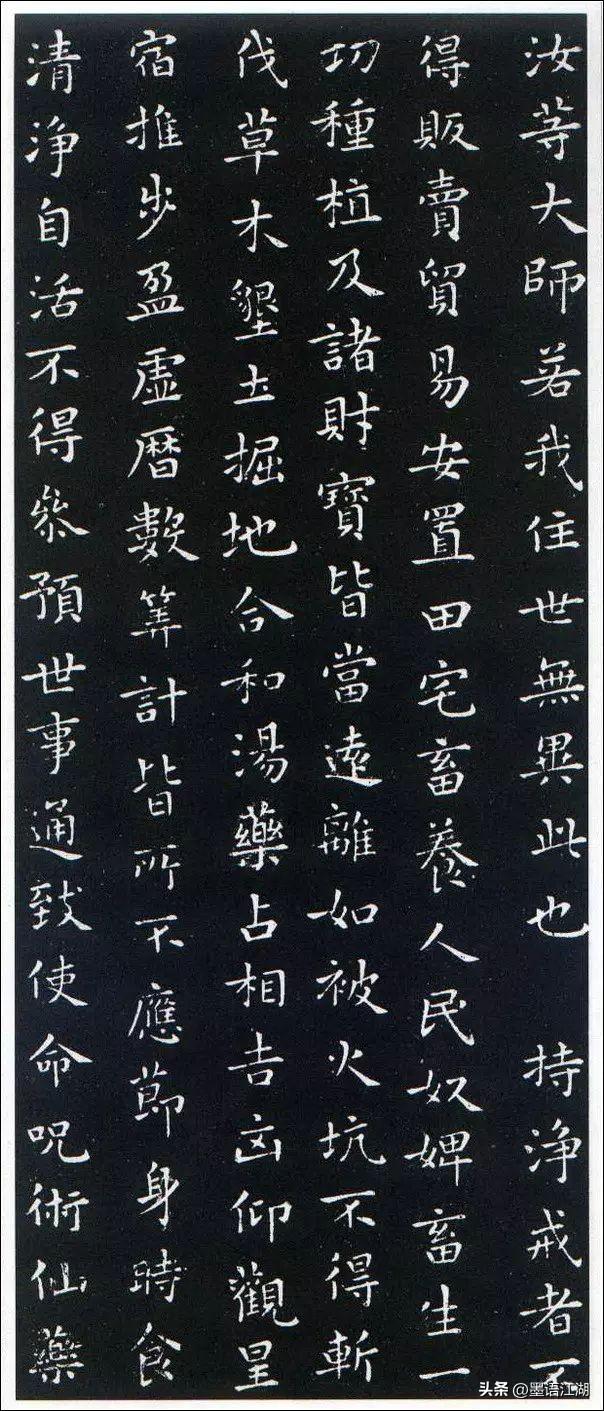 汝等大師若我住世無異此也 持淨戒者不
得販賣貿易安置田宅畜養人民奴婢畜生一
切種植及諸財寶皆當遠離如被火坑不得斬
伐草木墾土掘地合和湯藥占相吉凶仰觀星
宿推步盈虛曆數筭計皆所不應節身時食
清淨自活不得參預世事通致使命呪術仙藥
头条 @墨语江湖